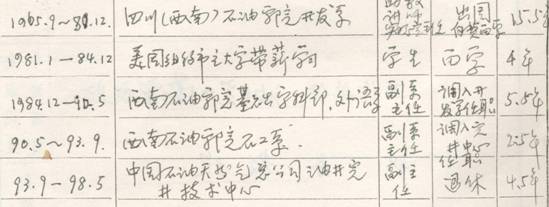 1965.9~80.12. 四川(西南)石油学院开发系 助教 讲师 出国 15.5年
1981.1-84.12 美国纽约市立大学带薪学习 学生 留学 4年
1984.12-90.5 西南石油学院基础学科部,外语系 副系主任 调入开发系任职 5.5年
90.5~93.9. 西南石油学院石工系. 副系主任 调入完井中心任职 2.5年
93.9-98.5 中国石油天然气总公司油井完井技术中心 副主任 退休 4.5年